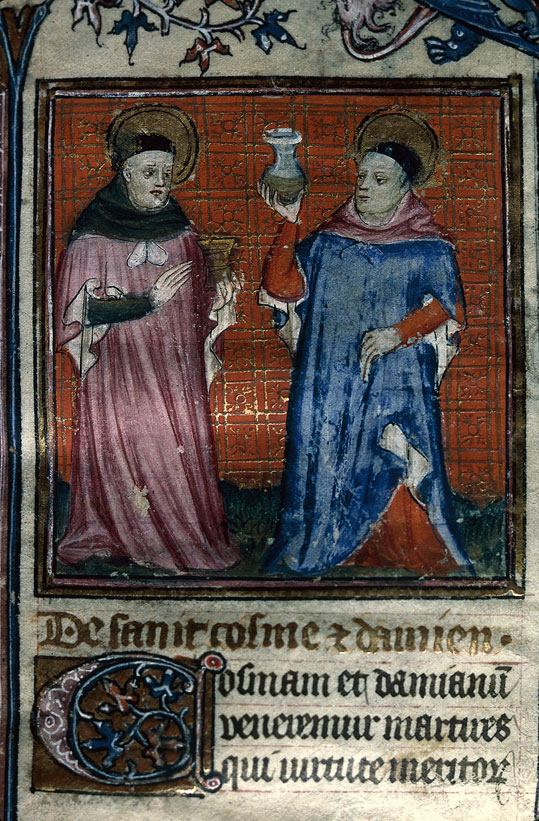 De saint cosme ⁊ damien.
Cosmam et damianū
veneremur martires
qui uirtute meritoꝝ